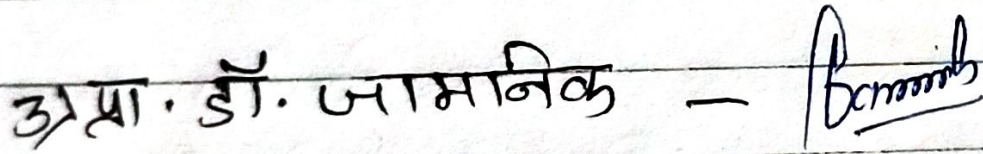 3) प्रा. डॉ. जामनिक –